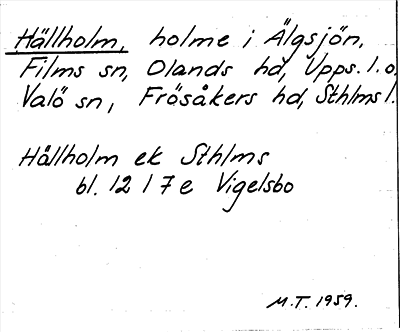 Hällholm, holme i Älgsjön,
Films sn, Olands hd, Upps. l. o.
Valö sn, Frösåkers hd, Sthlms l.
Hållholm ek Sthlms
bl. 12 I 7 e Vigelsbo
M.T. 1959.